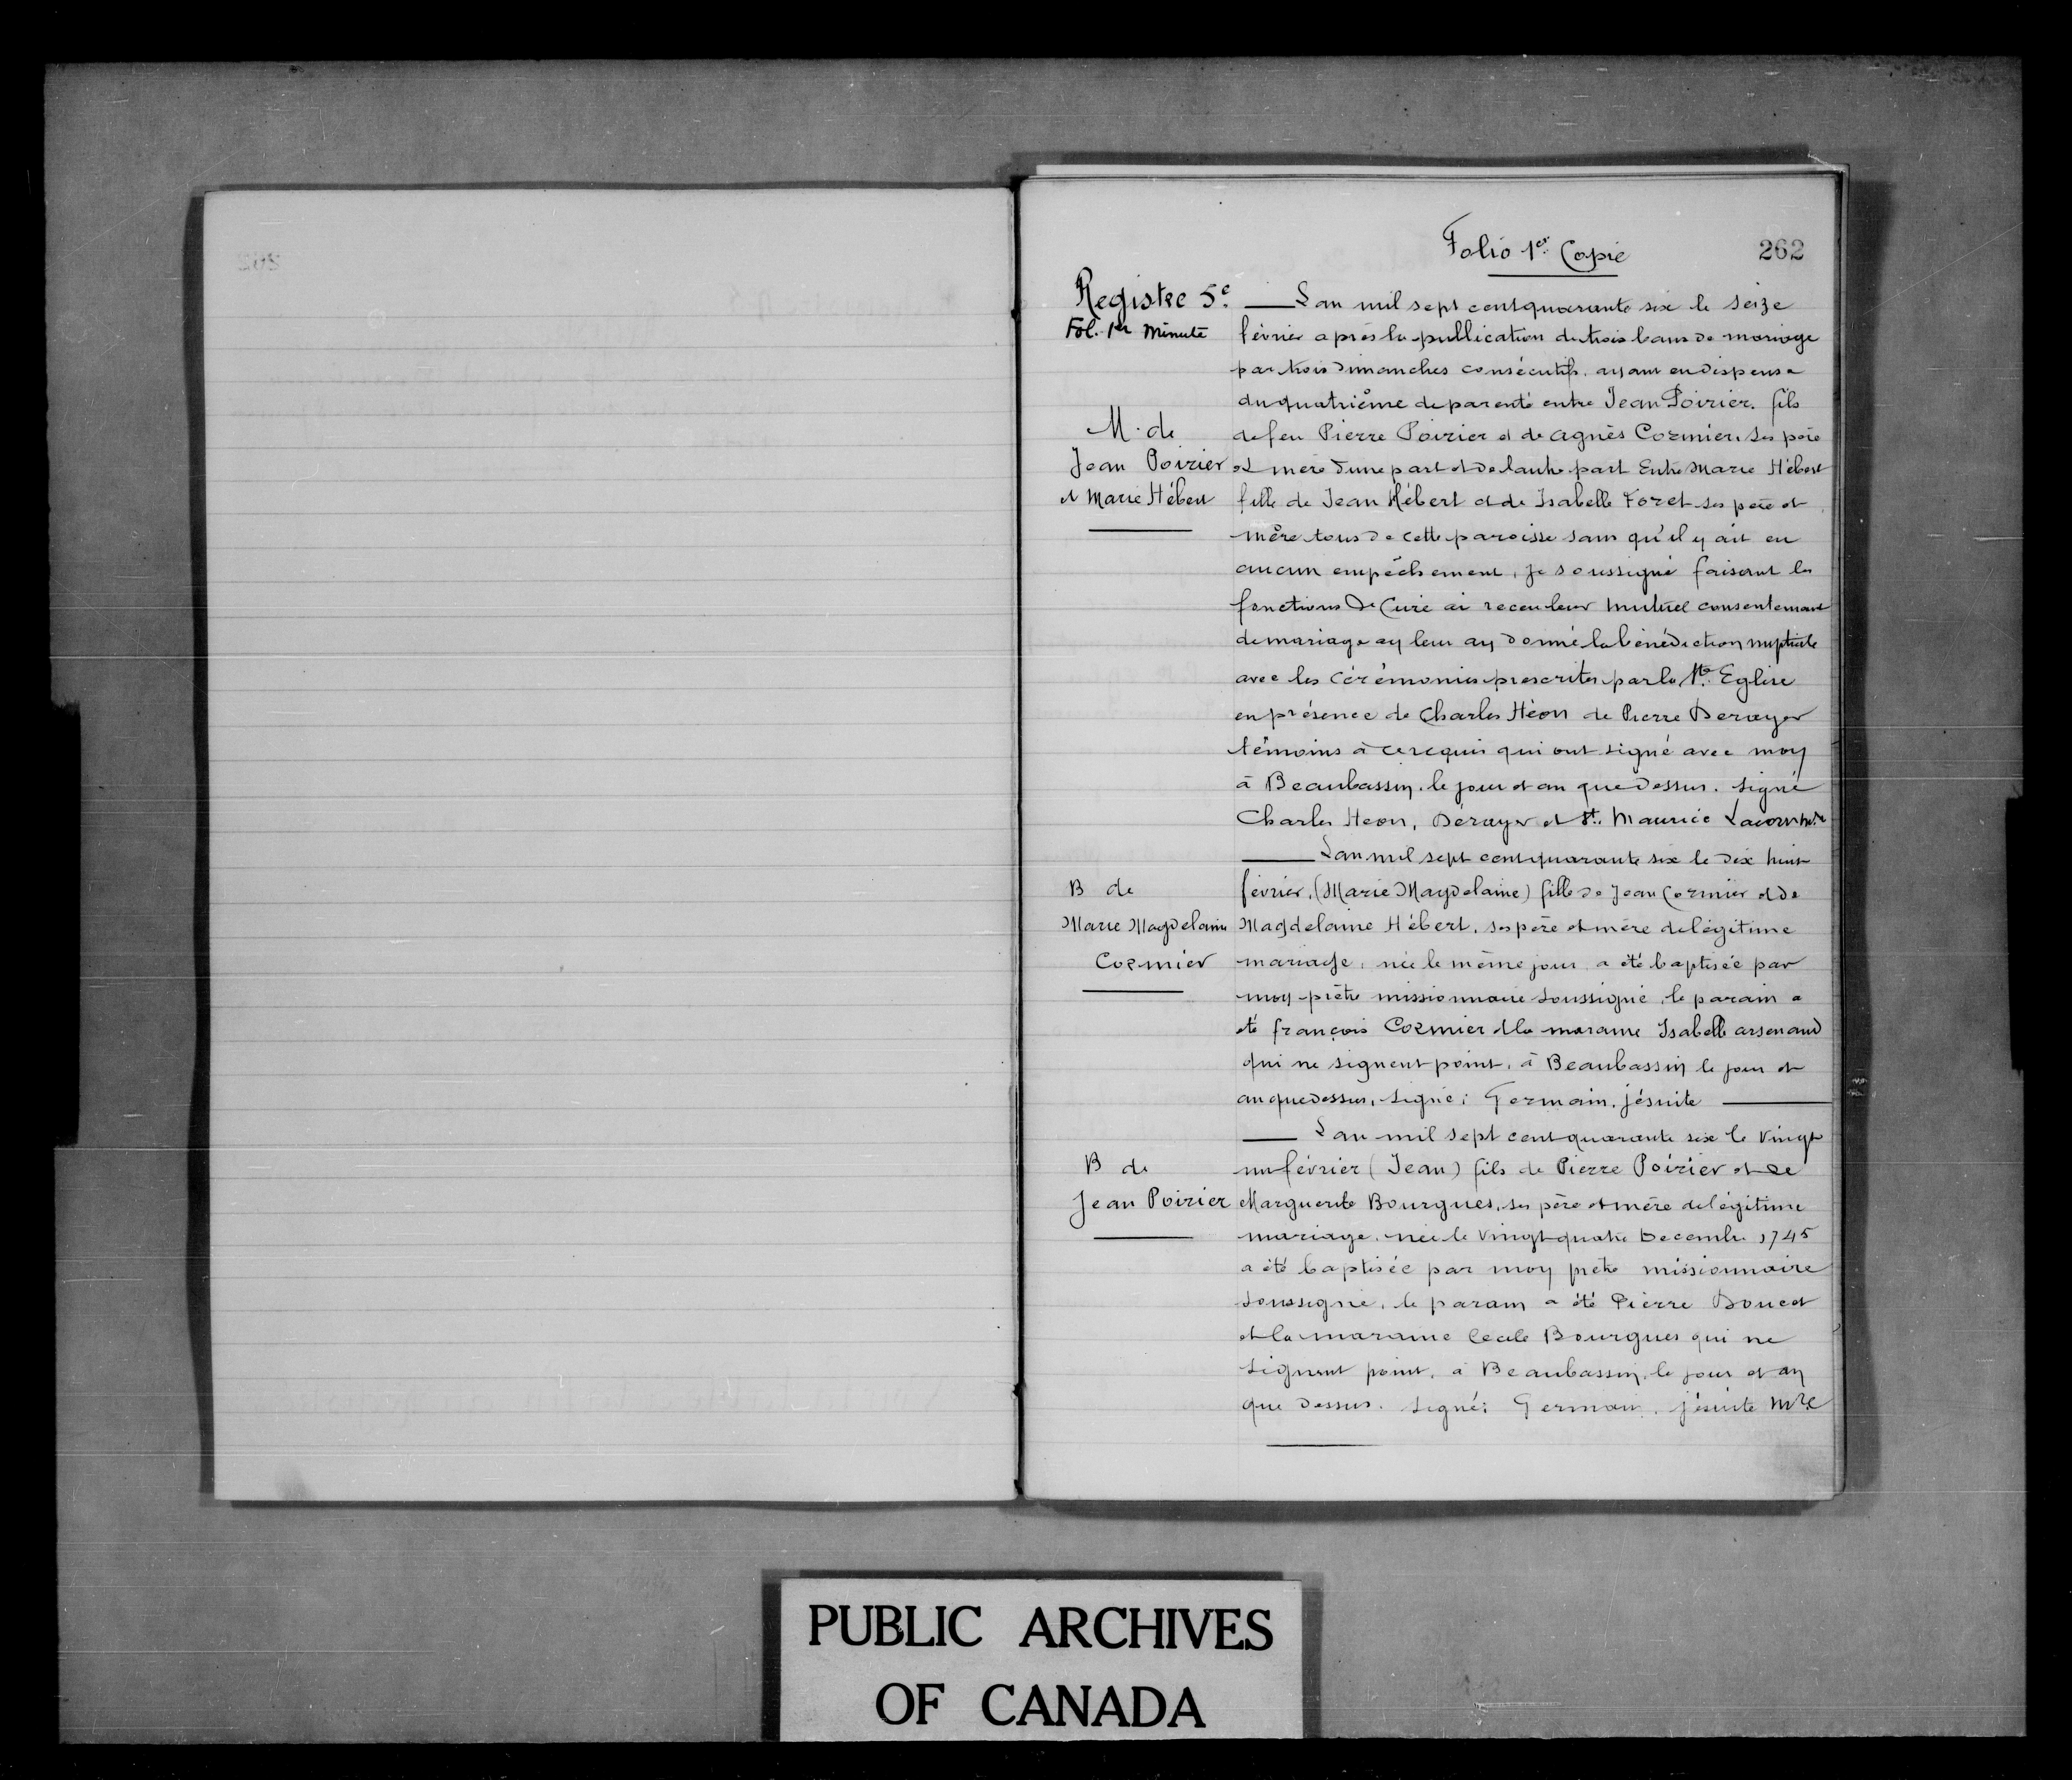 Folio 1er Copie
262
Registre 5e.
Fol. 1er Minute
M. de
Jean Poirier
et Marie Hébert
Lan mil sept cent quarante six le seize
février après la publication de trois bans de mariage
par trois Dimanches consécutifs, ayant eu dispense
du quatrième de parenté entre Jean Poirier, fils
de feu Pierre Poirier et de agnès Cormier, ses père
et mère d'une part et de lautre part Entre Marie Hébert
fille de Jean Hébert et de Isabelle Foret ses père et
mère tous de cette paroisse sans qu'il y ait eu
aucun empêchement, je soussigné faisant les
fonctions de Curé ai receu leur mutuel consentement
de mariage ay leur ay donné la bénédiction nuptiale
avec les Cérémonies prescrites par la Ste Eglise
en présence de Charles Héon de Pierre Derayer
témoins à ce requis qui ont signé avec moy
à Beaubassin, le jour et an que dessus. signé
Charles Heon, Dérayer et St. Maurice Lacorne
B de
Marie Magdelaine
Cormier
Lan mil sept cent quarante six le dix huit
février, (Marie Magdelaine) fille de Jean Cormier et de
Magdelaine Hébert, ses père et mère de légitime
mariage, née le même jour, a été baptisée par
moy prêtre missionnaire soussigné, le parain a
été françois Cormier et la maraine Isabelle arsenaud
qui ne signent point, à Beaubassin le jour et
an que dessus, signé: Germain, jésuite
B de
Jean Poirier
Lan mil sept cent quarante six le vingt
un février (Jean) fils de Pierre Poirier et de
Marguerite Bourgues, ses père et mère de légitime
mariage, née le vingt quatre Decembr. 1745
a été baptisée par moy prêtre missionnaire
soussigné, le parain a été Pierre Doucet
et la maraine Cecile Bourgues qui ne
signent point, à Beaubassin, le jour et an
que dessus. signé: Germain, jésuite Mre
PUBLIC ARCHIVES
OF CANADA